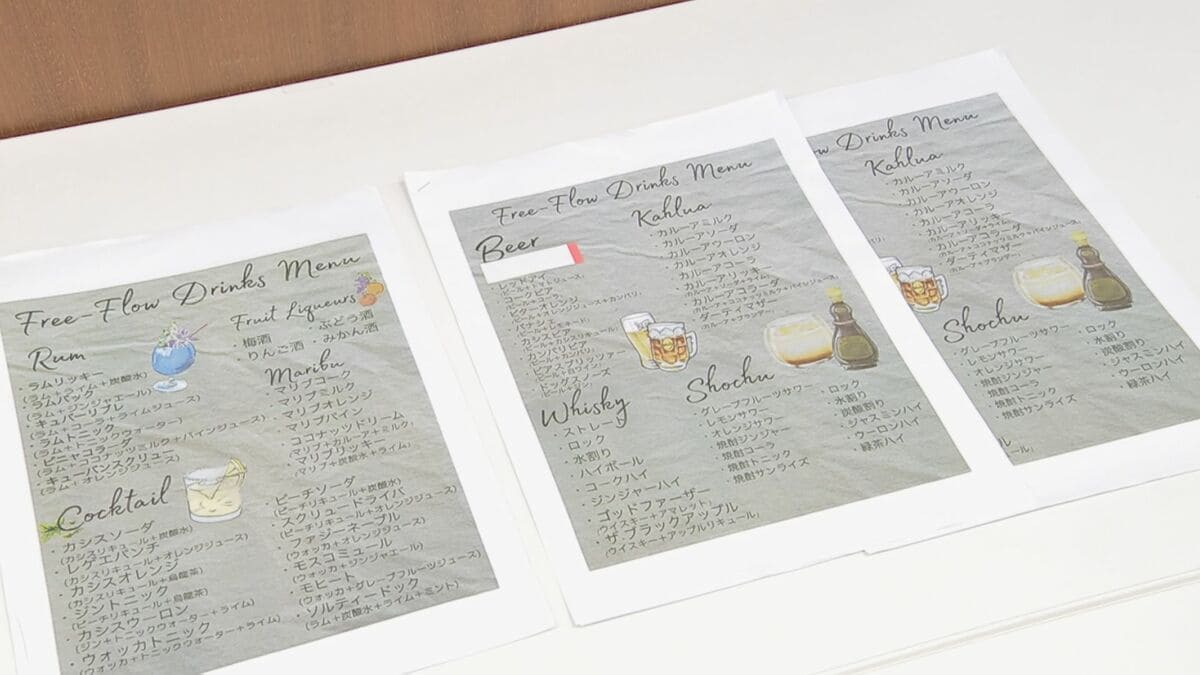 Free-Flow Drinks Menu
Rum
・ラムリッキー
(ラム+ライム+炭酸水)
・ラムバック
(ラム+ジンジャエール)
・キューバリブレ
(ラム+コーラ+ライムジュース)
・ラムトニック
(ラム+トニックウォーター)
・ピニャコラーダ
(ラム+ココナッツミルク+パインジュース)
・キューバンスクリュー
(ラム+オレンジジュース)
Fruit Liqueurs
・梅酒
・ぶどう酒
・りんご酒
・みかん酒
Maribu
・マリブコーク
・マリブミルク
・マリブオレンジ
・マリブパイン
・ココナッツドリーム
(マリブ+カルーア+ミルク)
・マリブリッキー
(マリブ+炭酸水+ライム)
Cocktail
・カシスソーダ
(カシスリキュール+炭酸水)
・レゲエパンチ
(カシスリキュール+オレンジジュース)
・カシスオレンジ
(カシスリキュール+烏龍茶)
・ジントニック
(ピーチリキュール+烏龍茶)
・カシスウーロン
(ジン+トニックウォーター+ライム)
・ウォッカトニック
(ウォッカ+トニックウォーター+ライム)
・ピーチソーダ
(ピーチリキュール+炭酸水)
・スクリュードライバ
(ピーチリキュール+オレンジジュース)
・ファジーネーブル
(ウォッカ+オレンジジュース)
・モスコミュール
(ウォッカ+ジンジャエール)
・モヒート
(ウォッカ+グレープフルーツジュース)
・ソルティードック
(ラム+炭酸水+ライム+ミント)
Free-Flow Drinks Menu
Beer
・レッドアイ
(ビール+トマトジュース)
・コークビア
(ビール+コーラ)
・ビターオレンジ
(ビール+オレンジジュース+カンパリ)
・パナシェ
(ビール+レモネード)
・カシスビア
(ビール+カシスリキュール)
・カンパリビア
(ビール+カンパリ)
・ビアスプリッツァー
(ビール+白ワイン)
・ドッグズノーズ
(ビール+ジン)
Whisky
・ストレート
・ロック
・水割り
・ハイボール
・コークハイ
・ジンジャーハイ
・ゴッドファーザー
(ウイスキー+アマレット)
・ザ・ブラックアップル
(ウイスキー+アップルリキュール)
Kahlua
・カルーアミルク
・カルーアソーダ
・カルーアウーロン
・カルーアオレンジ
・カルーアコーラ
・カルーアリッキー
(カルーア+ソーダ+ライム)
・カルーアコラーダ
(カルーア+ココナッツミルク+パインジュース)
・ダーティマザー
(カルーア+ブランデー)
Shochu
・グレープフルーツサワー
・レモンサワー
・オレンジサワー
・焼酎ジンジャー
・焼酎コーラ
・焼酎トニック
・焼酎サンライズ
・ロック
・水割り
・炭酸割り
・ジャスミンハイ
・ウーロンハイ
・緑茶ハイ
ow Drinks Menu
Kahlua
・カルーアミルク
・カルーアソーダ
・カルーアウーロン
・カルーアオレンジ
・カルーアコーラ
・カルーアリッキー
(カルーア+ソーダ+ライム)
・カルーアコラーダ
(カルーア+ココナッツミルク+パインジュース)
・ダーティマザー
(カルーア+ブランデー)
Shochu
・グレープフルーツサワー
・レモンサワー
・オレンジサワー
・焼酎ジンジャー
・焼酎コーラ
・焼酎トニック
・焼酎サンライズ
・ロック
・水割り
・炭酸割り
・ジャスミンハイ
・ウーロンハイ
・緑茶ハイ